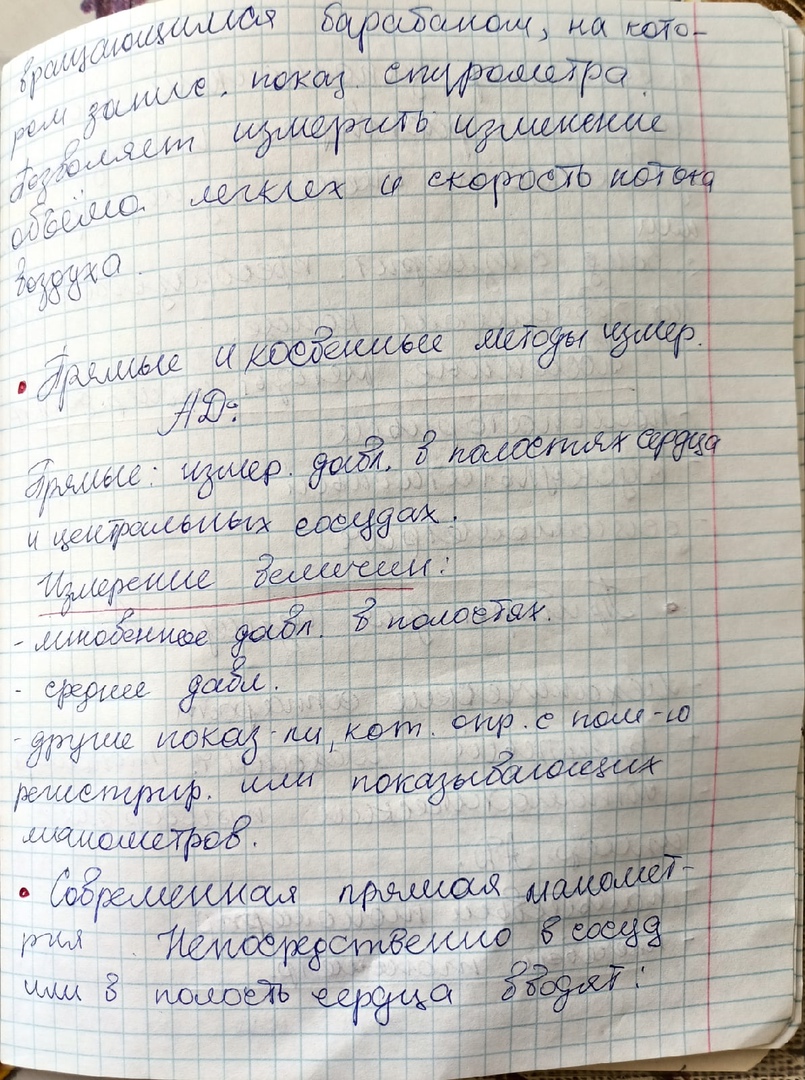 вращающимся барабаном, на кото-
ром запис. показ. спирометра.
Позволяет измерить изменение
объёма легких и скорость потока
воздуха.
• Прямые и косвенные методы измер.
АД:
Прямые: измер. давл. в полостях сердца
и центральных сосудах.
Измерение величин:
- мгновенное давл. в полостях.
- среднее давл.
- другие показ-ли, кот. опр. с пом-ю
регистрир. или показывающих
манометров.
• Современная прямая маномет-
рия. Непосредственно в сосуд
или в полость сердца вводят: